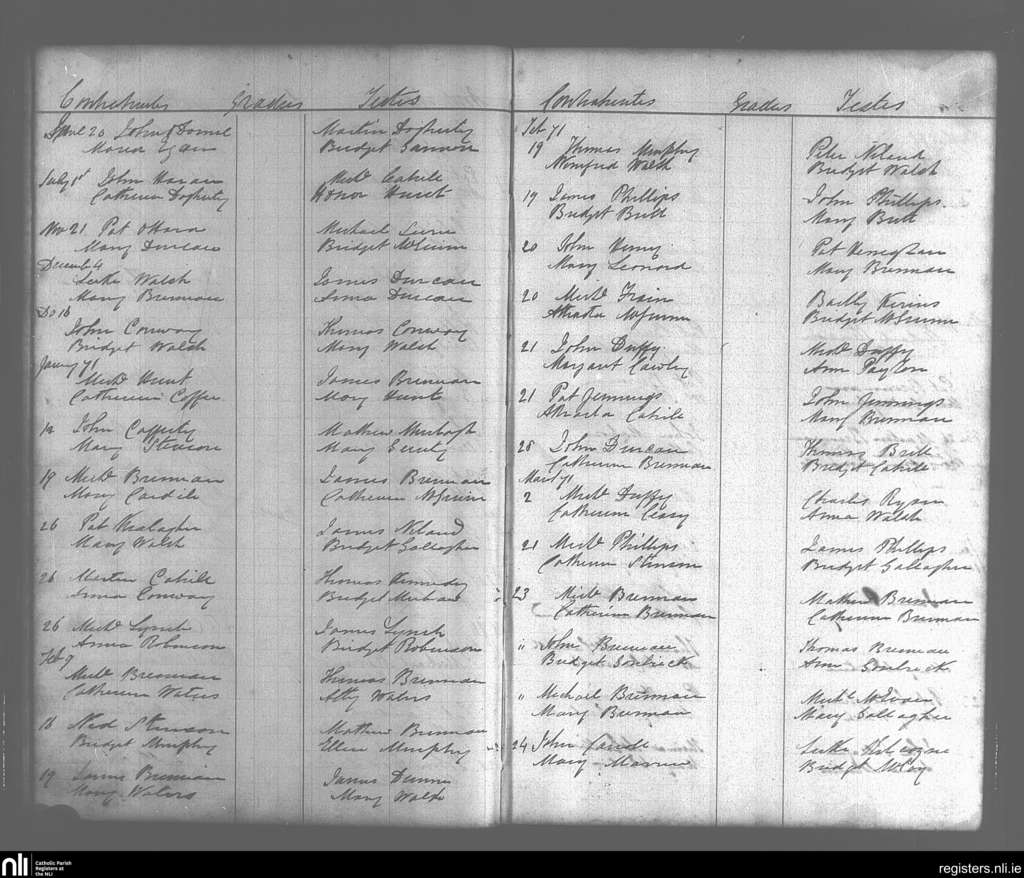 Contrahentes Gradus Testes
John
Maria Egan
Martin Dogherty
Bridget Gannon
July 1st John Horan
Catherine Dogherty
Michl Cahill
Honor Hunt
Nov 21 Pat OHara
Mary Duncan
Michael
Bridget McGuinn
Decemb 4
Luke Walsh
Mary Brennan
James Duncan
Anna Duncan
Do 10
John Conway
Bridget Walsh
Thomas Conway
Mary Walsh
71
Michl Hunt
Catherine
James Brennan
Mary Hunt
John Cafferty
Mary Stenson
Mathew
Mary
19 Michl Brennan
Mary
James Brennan
Catherine McGuinn
26 Pat
Mary Walsh
James Neland
Bridget Gallagher
26 Martin Cahill
Anna Conway
Thomas Kennedy
Bridget
26 Michl Lynch
Anna Robinson
James Lynch
Bridget Robinson
Feb 9
Michl Brennan
Catherine Waters
Thomas Brennan
Atty Waters
18 Ned Stenson
Bridget Murphy
Mathew Brennan
Ellen Murphy
19 James Brennan
Mary Waters
James
Mary Walsh
Contrahentes Gradus Testes
Feb 71
19 Thomas Murphy
Winifred Walsh
Peter Neland
Bridget Walsh
19 James Phillips
Bridget Brett
John Phillips
Mary Brett
20 John Henry
Mary Leonard
Pat Heneghan
Mary Brennan
20 Michl Frain
Attracta McGuinn
Batty Kerins
Bridget McGuinn
21 John Duffy
Margaret Cawley
Michl Duffy
Ann Payton
21 Pat Jennings
Attracta Cahill
John Jennings
Mary Brennan
28 John Duncan
Catherine Brennan
Thomas Brett
Bridget Cahill
March 71
2 Michl Duffy
Catherine
Charles Ryan
Anna Walsh
21 Michl Phillips
Catherine Stenson
James Phillips
Bridget Gallagher
23 Michl Brennan
Catherine Brennan
Mathew Brennan
Catherine Brennan
" John Brennan
Bridget
Thomas Brennan
Ann
" Michael Brennan
Mary Brennan
Michl
Mary Gallagher
24 John
Mary
Luke
Bridget McCoy
nli
Catholic Parish
Registers at
the NLI
registers.nli.ie